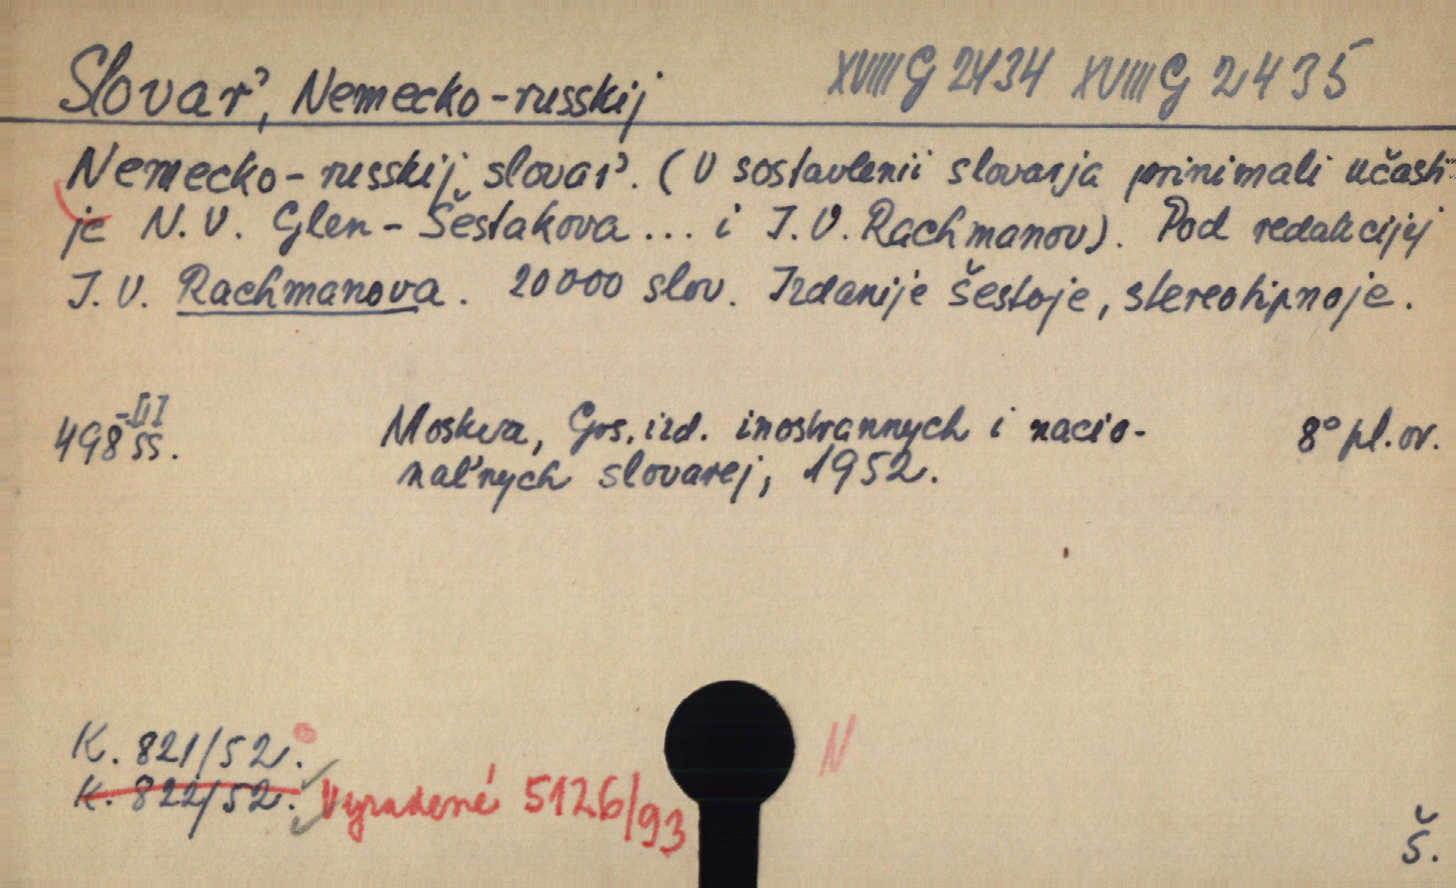 Slovar', Nemecko-russkij XVIII G 2434 XVIII G 2435
Nemecko-russkij slovar'. (V sostavlenii slovarja prinimali učasti-
je N. V. Glen-Šestakova ... i I. V. Rachmanov). Pod redakcijej
I. V. Rachmanova. 20000 slov. Izdanije šestoje, stereotipnoje.
-[I]
498 ss. Moskva, Gos. izd. inostrannych i nacio- 8° pl. or.
nal'nych slovarej, 1952.
K. 821/52. N
K. 822/52. Vyradené 5126/93
Š.